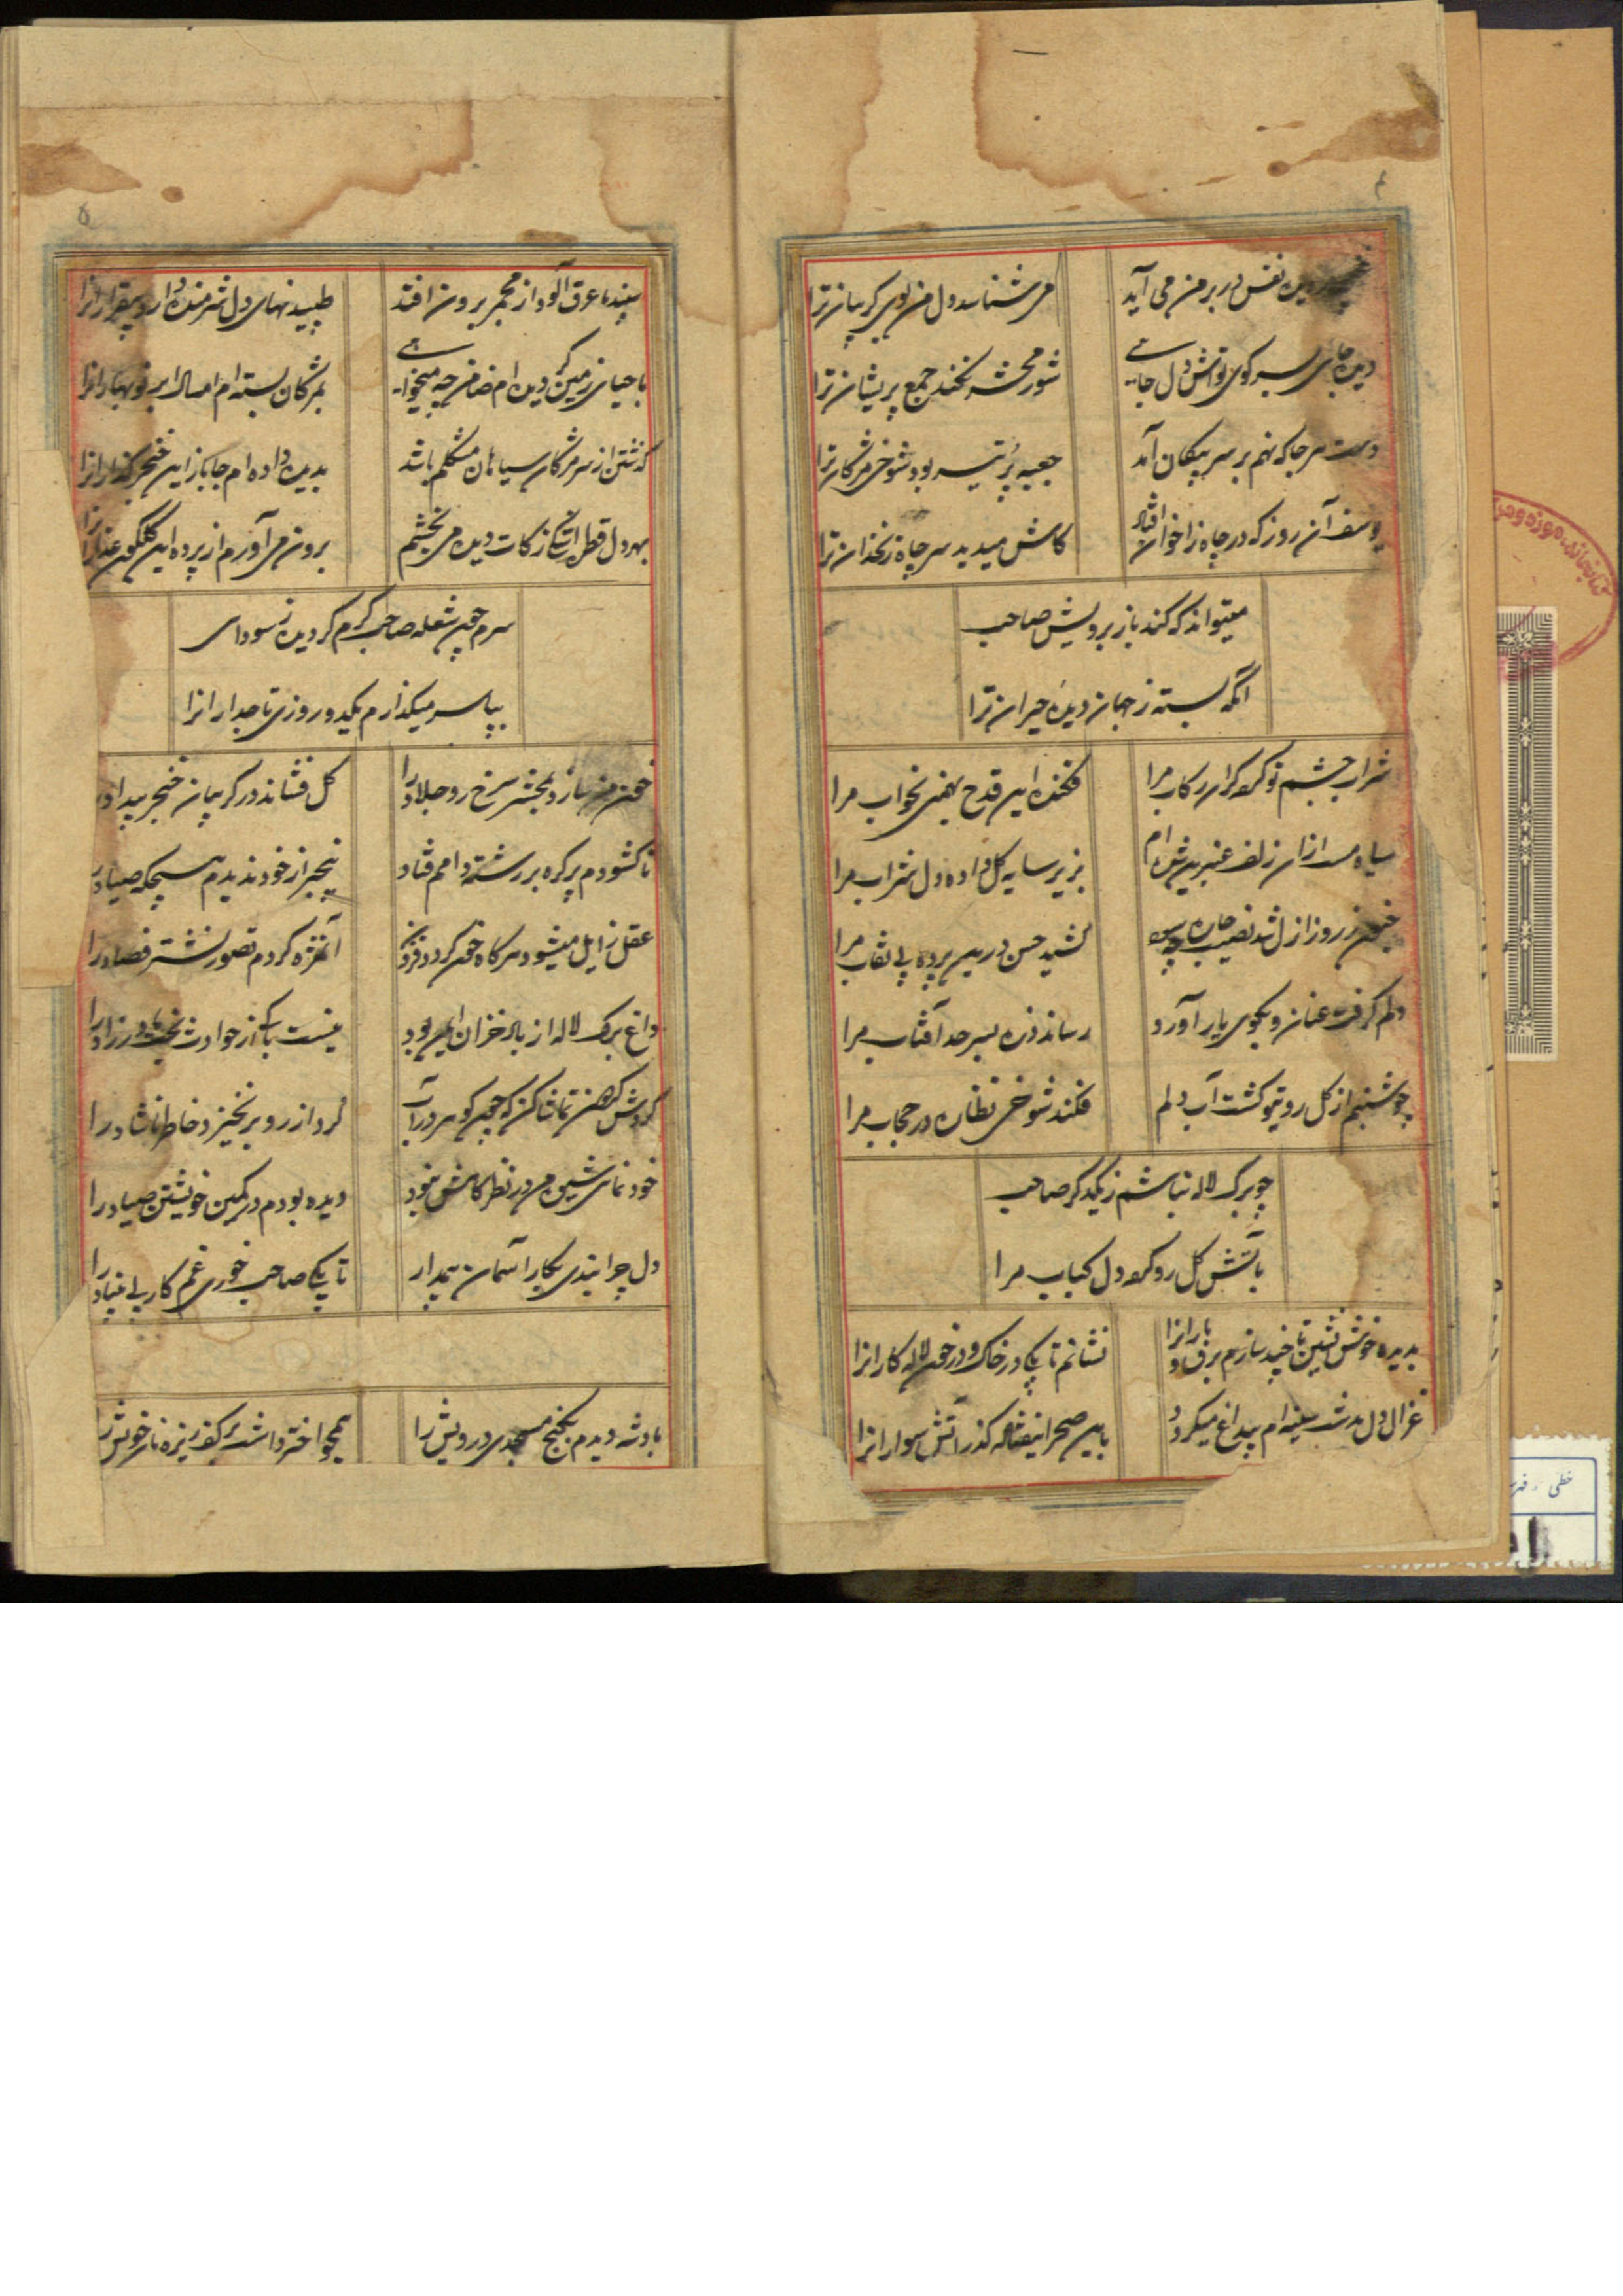 ۴
نفس در بر من می آید
می شناسد دل من بوی کریبان ترا
دیده جای بسر کوی تو اش دل جایی
شور محشر نکند جمع پریشان ترا
دست هر جا که نهم بر سر پیکان آید
جعبه پر تیر بود شوخی مژکان ترا
یوسف آن روز که در چاه ز اخوان افتاد
کاش میدید سر چاه زنخدان ترا
میتواند که کند ناز برویش صاحب
آنکه بسته ز جهان دیده حیران ترا
شراب چشم تو کرده کران رکاب مرا
فکنده این قدح بیخودی بخواب مرا
سیاه مست ازان زلف عنبرین شده ام
بزیر سایه کل داده دل شراب مرا
جنون ز روز ازل شد نصیب جان
کشید حسن در پس پرده بی نقاب مرا
دلم کرفت عنان و بکوی یار آورد
رساند ذره بسرحد آفتاب مرا
چو شبنم از کل روی تو کشت آب دلم
فکند شوخی نظاره در حجاب مرا
چو برک لاله نباشم ز یکدکر صاحب
بآتش کل رو کرده دل کباب مرا
بدیده خوش نشین تا چند سازم برق و بارانرا
نشانم تا بکی در خاک و در خون لاله کارانرا
غزال دل نشد سینه ام پیداغ میکردد
باین صحرا نیفتاده کذر آتش سوارانرا
۵
سپند ما عرق آلود از مجمر برون افتد
طپیدنهای دل شرمنده دارد بیقرارانرا
با حیای زمین کریه دیده ام ضامن چه میخواهی
بمژکان بسته ام امسال ابر نوبهارانرا
کذشتن از سر مژکان سیاهان مشکلم باشد
بدیده داده ام جا باز این خنجر کذارانرا
بهر دل قطره اشکی زکات دیده می بخشم
برون می آورم از پرده این کلکون عذارانرا
سرم چون شعله صاحب کرم کردیده ز سودای
بپا سر میکذارم یکدو روزی تاجدارانرا
خون من سازد بمحشر سرخ رو جلاد را
کل فشاند در کریبان خنجر بیداد را
تا کشودم پر کره بر رشته دامم فتاد
بیخبر از خود ندیدم هیچکه صیاد را
عقل زایل میشود هرکاه خون کردد فزون
آنقدر کردم تصور نشتر فصاد را
داغ برک لاله از باد خزان ایمن بود
نیست باکی از حوادث بخت مادرزاد را
کردش کردون تماشا کن که چون کوهر در آب
کرد از رو بر نخیزد خاطر ناشاد را
خود نمای شیوه من در نظر کاهش نبود
دیده بودم در کمین خویشتن صیاد را
دل چرا بندی بکار آسمان بیمدار
تا بکی صاحب خوری غم کار بی بنیاد را
بادشه دیدم بکنج مسجدی درویش را
همچو اختر داشت بر کف ریزه نان خویش را
خطی